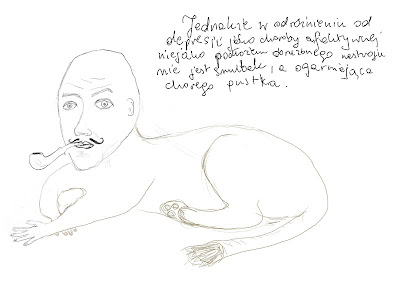 Jednakże w odróżnieniu od
depresji jako choroby afektywnej
niejako podłożem obniżonego nastroju
nie jest smutek, a ogarniająca
chorego pustka.